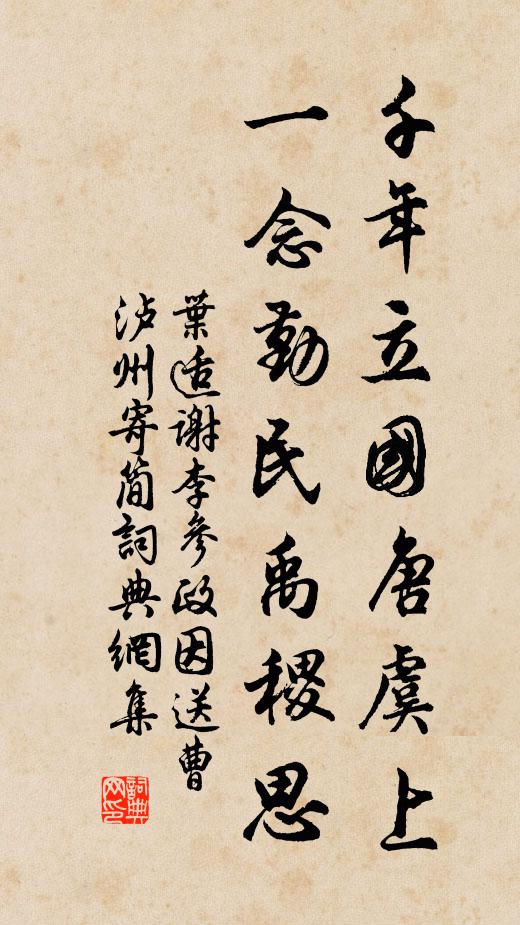 千年立國唐虞上
一念勤民禹稷思
葉适謝李參政因送曹
泸州寄简詞典網集
詞典网印